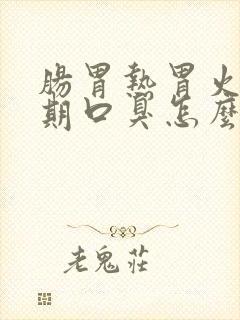 腸胃熱胃火
期口臭怎麼
老鬼莊